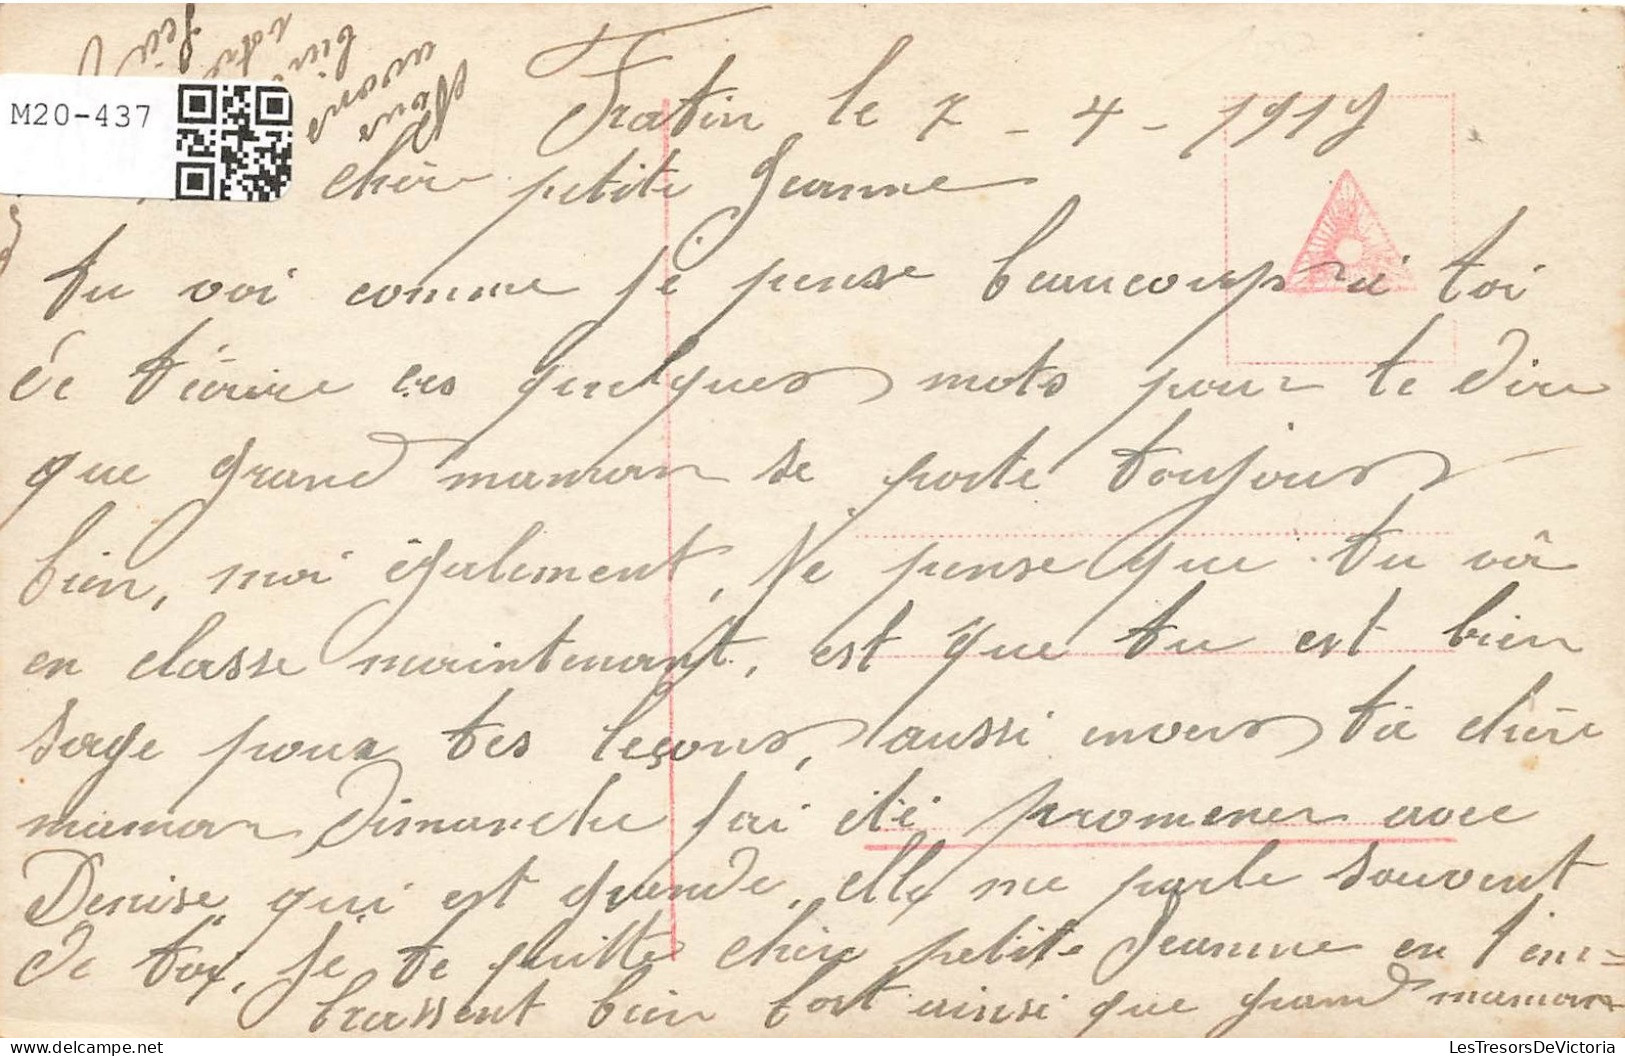 M20-437
Nous
avons
bien
Fratin le 7 - 4 - 1919
chère petite Jeanne
tu voi comme je pense beaucoup à toi
de t'écrire ces quelques mots pour te dire
que grand maman se porte toujours
bien, moi également, Je pense que tu vâ
en classe maintenant, est que tu est bien
sage pour tes leçons, aussi envers ta chère
maman Dimanche j'ai été promener avec
Denise qui est grande, elle me parle souvent
de toi, je te quitte chère petite Jeanne en t'em=
brassent bien fort ainsi que grand maman
LesTresorsDeVictoria - Delcampe.net